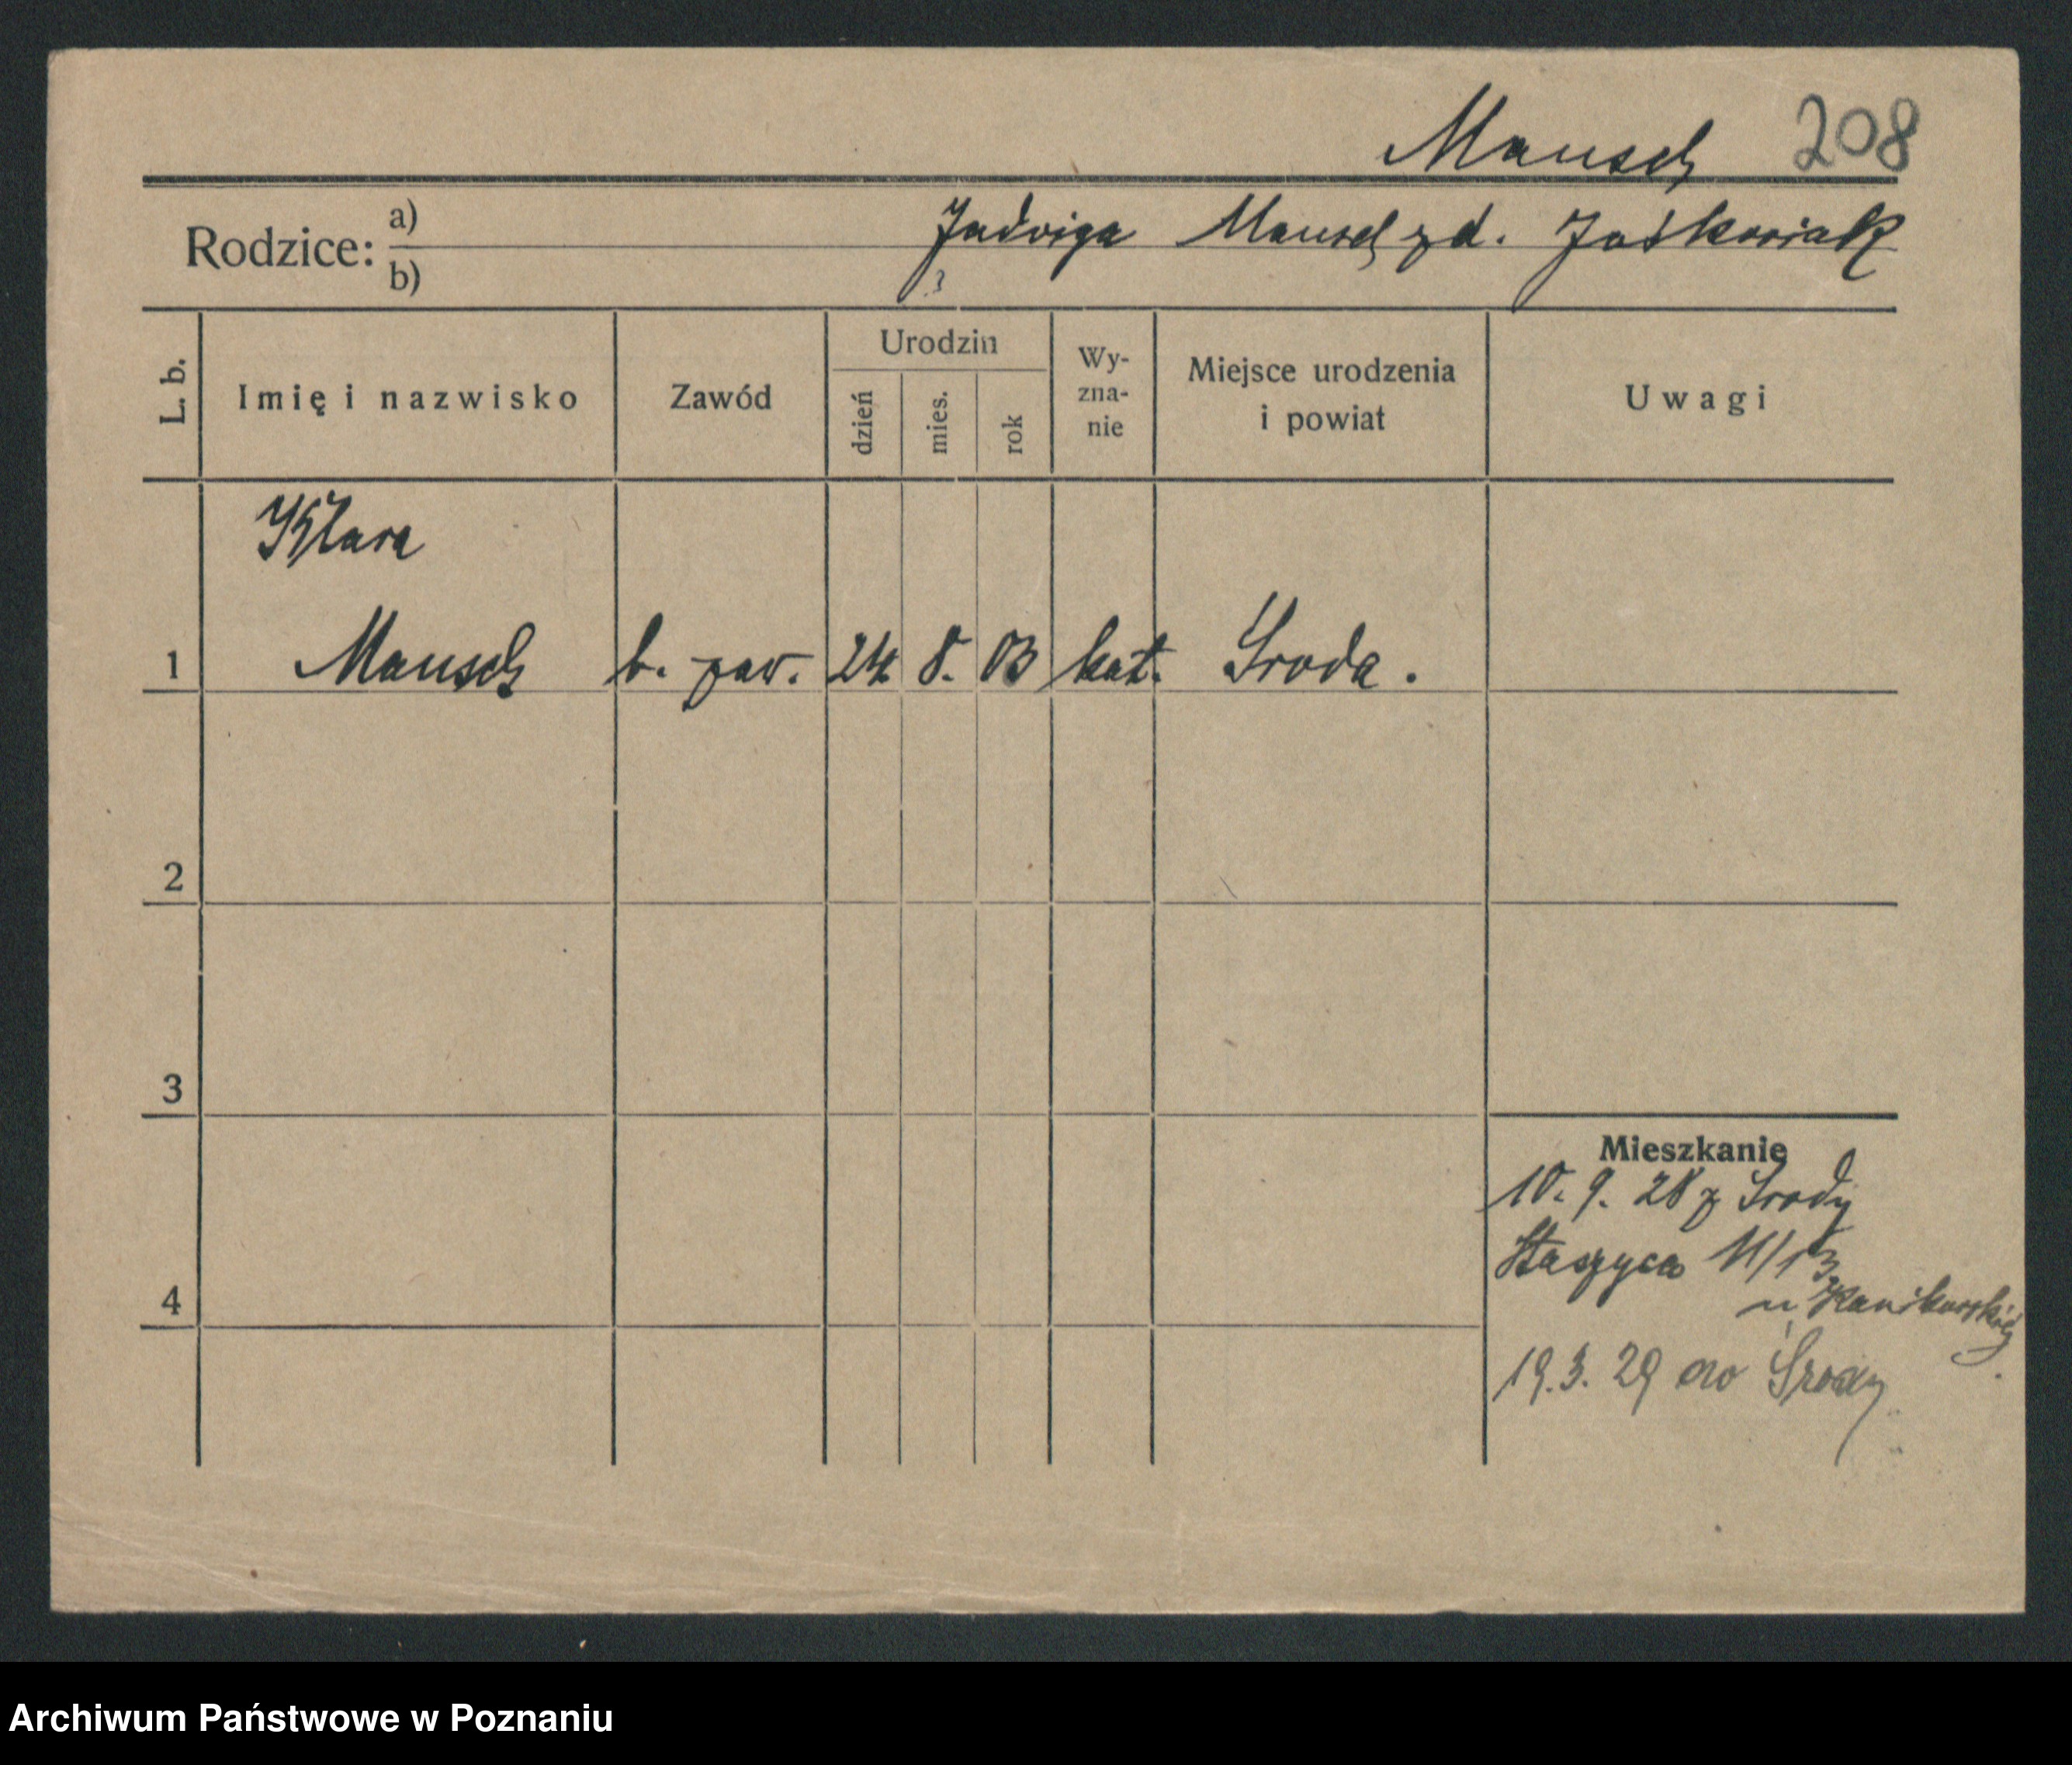 Mausch 208
Rodzice: a) Jadwiga Mausch z d. Jaśkowiak
b) ?
L. b. Imię i nazwisko Zawód Urodzin dzień mies. rok Wy-zna-nie Miejsce urodzenia i powiat Uwagi
Klara
1 Mausch b. zaw. 24 8. 03 kat. Sroda.
2
3
Mieszkanie
10. 9. 28 z Srody
Staszyca 11/13
4
u
19. 3. 29 do Środy
Archiwum Państwowe w Poznaniu